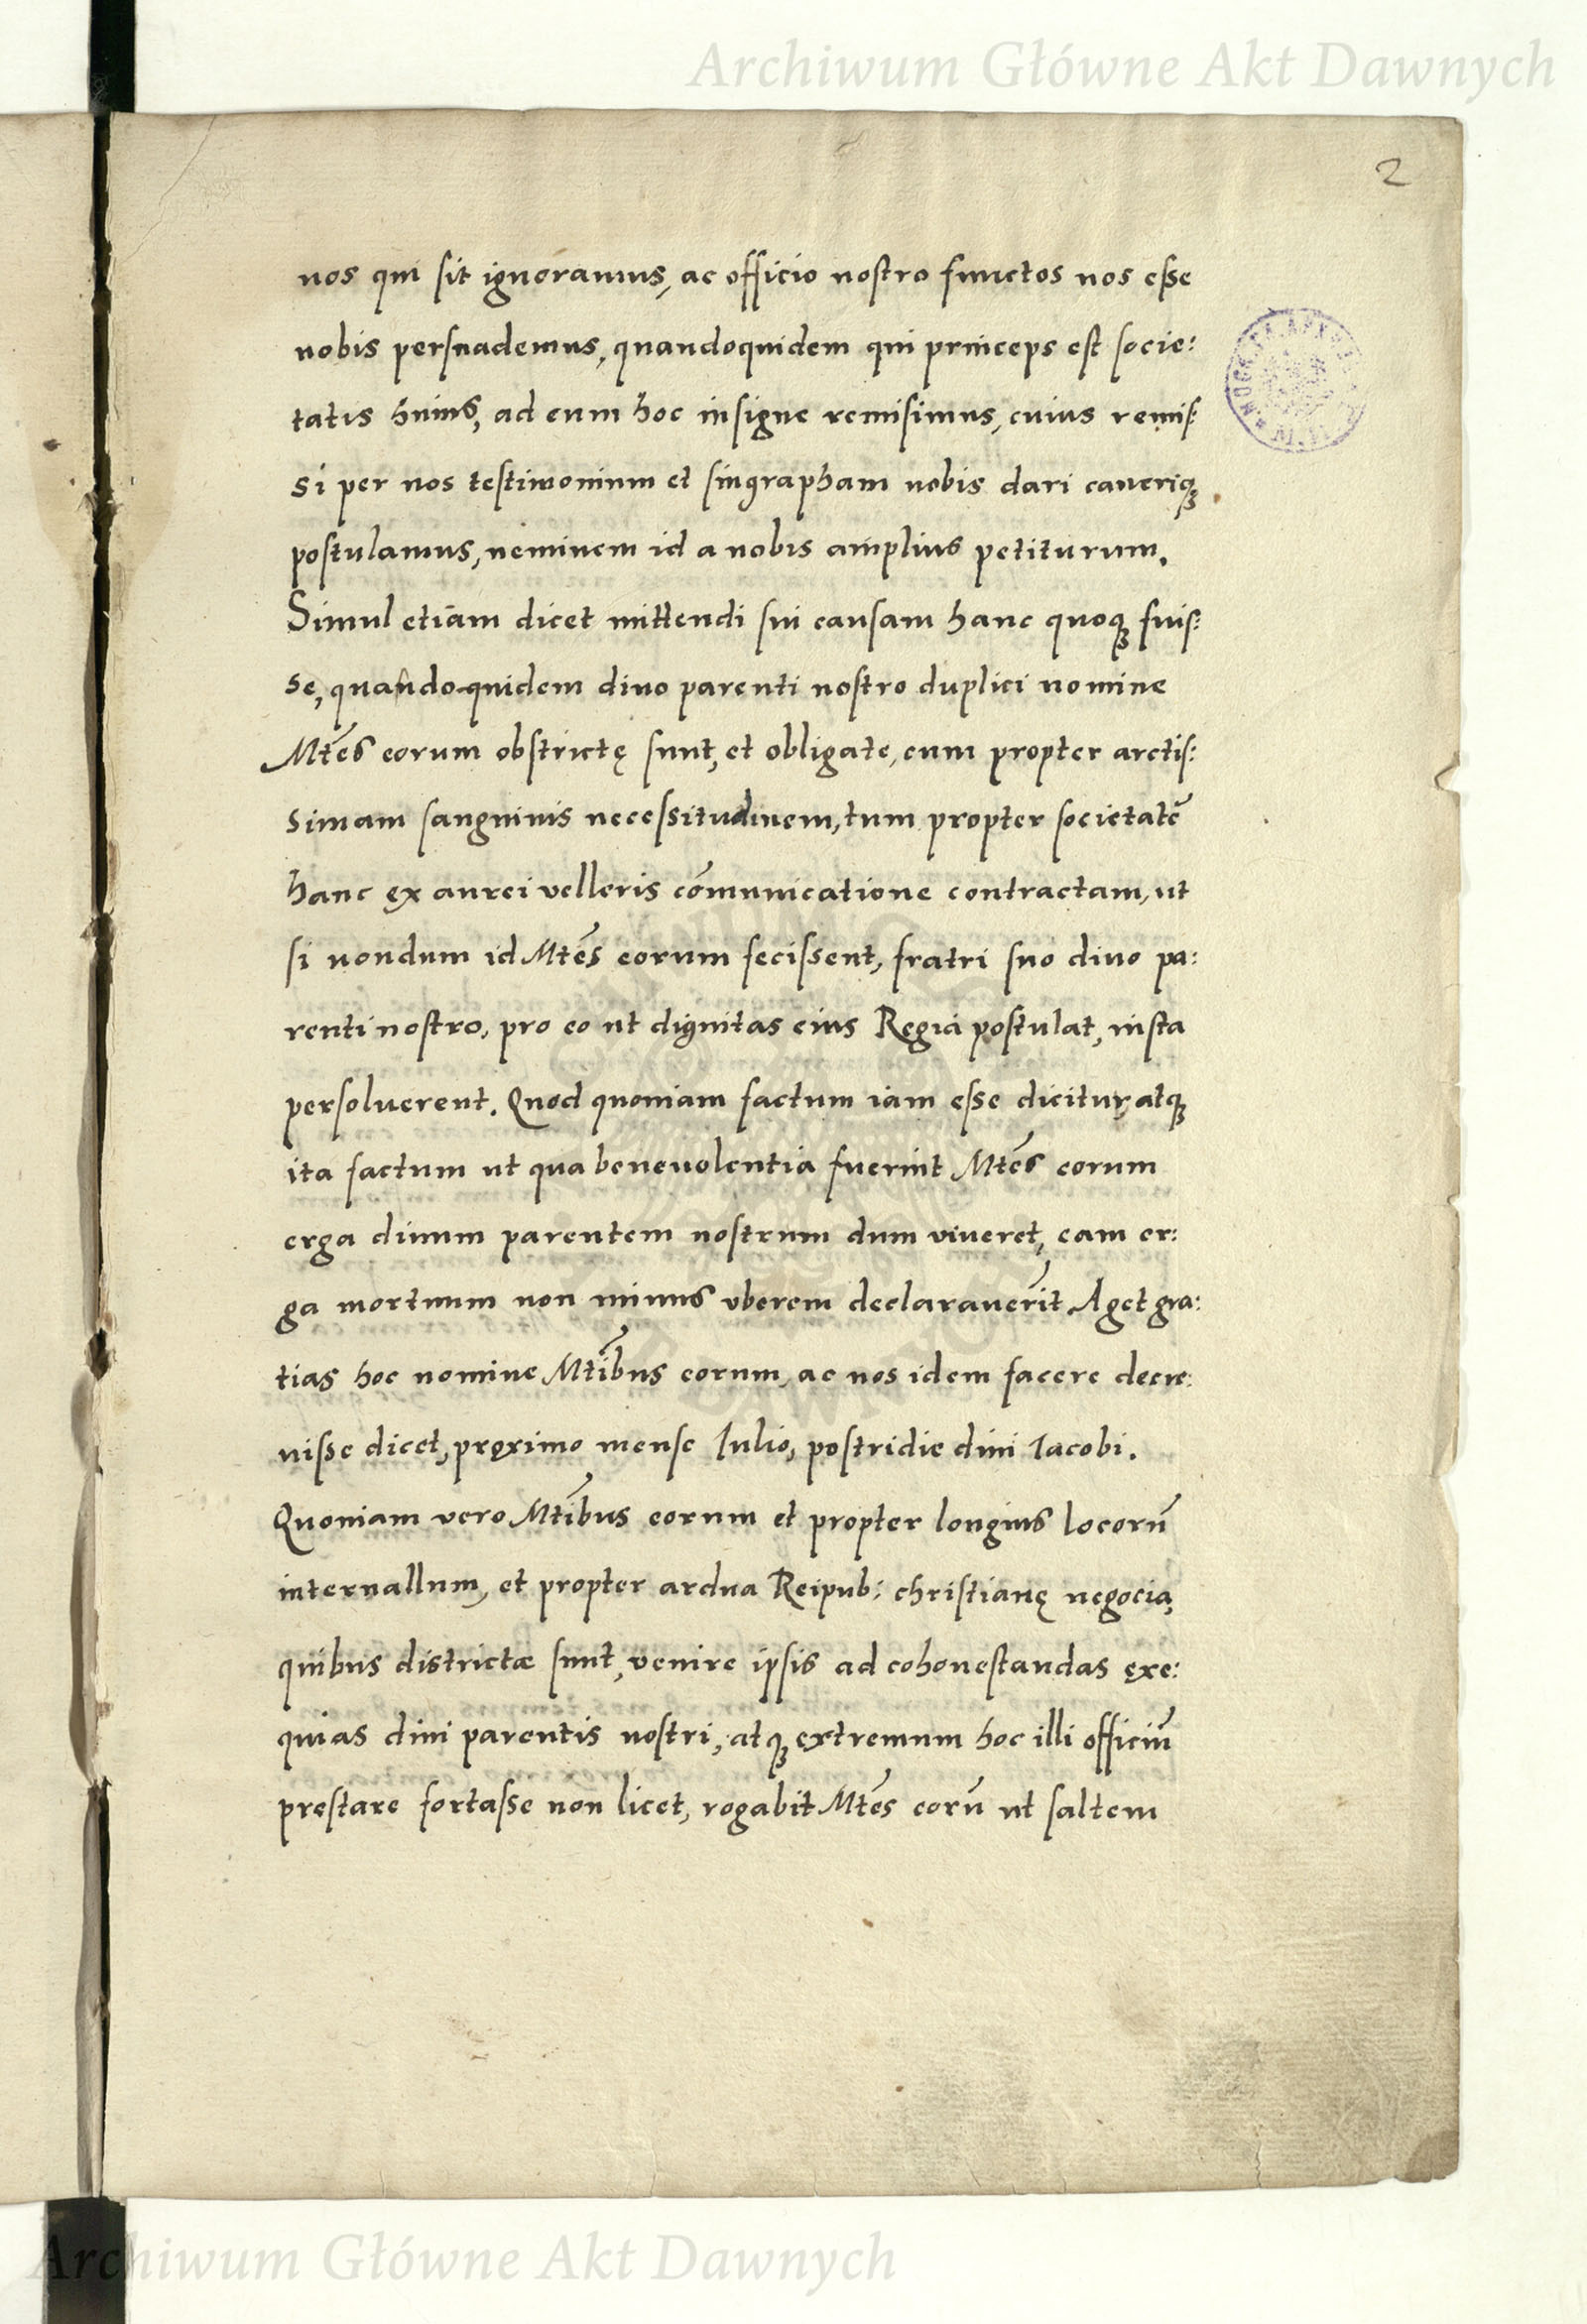 Archiwum Główne Akt Dawnych
2
nos qui sit ignoramus, ac officio nostro functos nos esse
nobis persuademus, quandoquidem qui princeps est socie:
tatis huius, ad eum hoc insigne remisimus, cuius remis:
si per nos testimonium et singrapham nobis dari caveriq
postulamus, neminem id a nobis amplius petiturum.
Simul etiam dicet mittendi sui causam hanc quoq fuis:
se, quandoquidem divo parenti nostro duplici nomine
Mtēs eorum obstrictę sunt, et obligate, cum propter arctis:
simam sanguinis necessitudinem, tum propter societatē
hanc ex aurei velleris cōmunicatione contractam, ut
si nondum id Mtēs eorum fecissent, fratri suo divo pa:
renti nostro, pro eo ut dignitas eius Regia postulat, iusta
persoluerent. Quod quoniam factum iam esse dicitur, atq
ita factum ut qua benevolentia fuerint Mtēs eorum
erga divum parentem nostrum dum viveret, eam er:
ga mortuum non minus uberem declaraverīt. Aget gra:
tias hoc nomine Mtibus eorum, ac nos idem facere decre:
uisse dicet, pręximo mense Iulio, postridie divi Iacobi.
Quoniam vero Mtibus eorum et propter longius locorū
intervallum, et propter ardua Reipub: christianę negocia,
quibus districtæ sunt, venire ipsis ad cohonestandas exe:
quias divi parentis nostri, atq extremum hoc illi officiū
pręstare fortasse non licet, rogabit Mtēs eorū ut saltem
Archiwum Główne Akt Dawnych